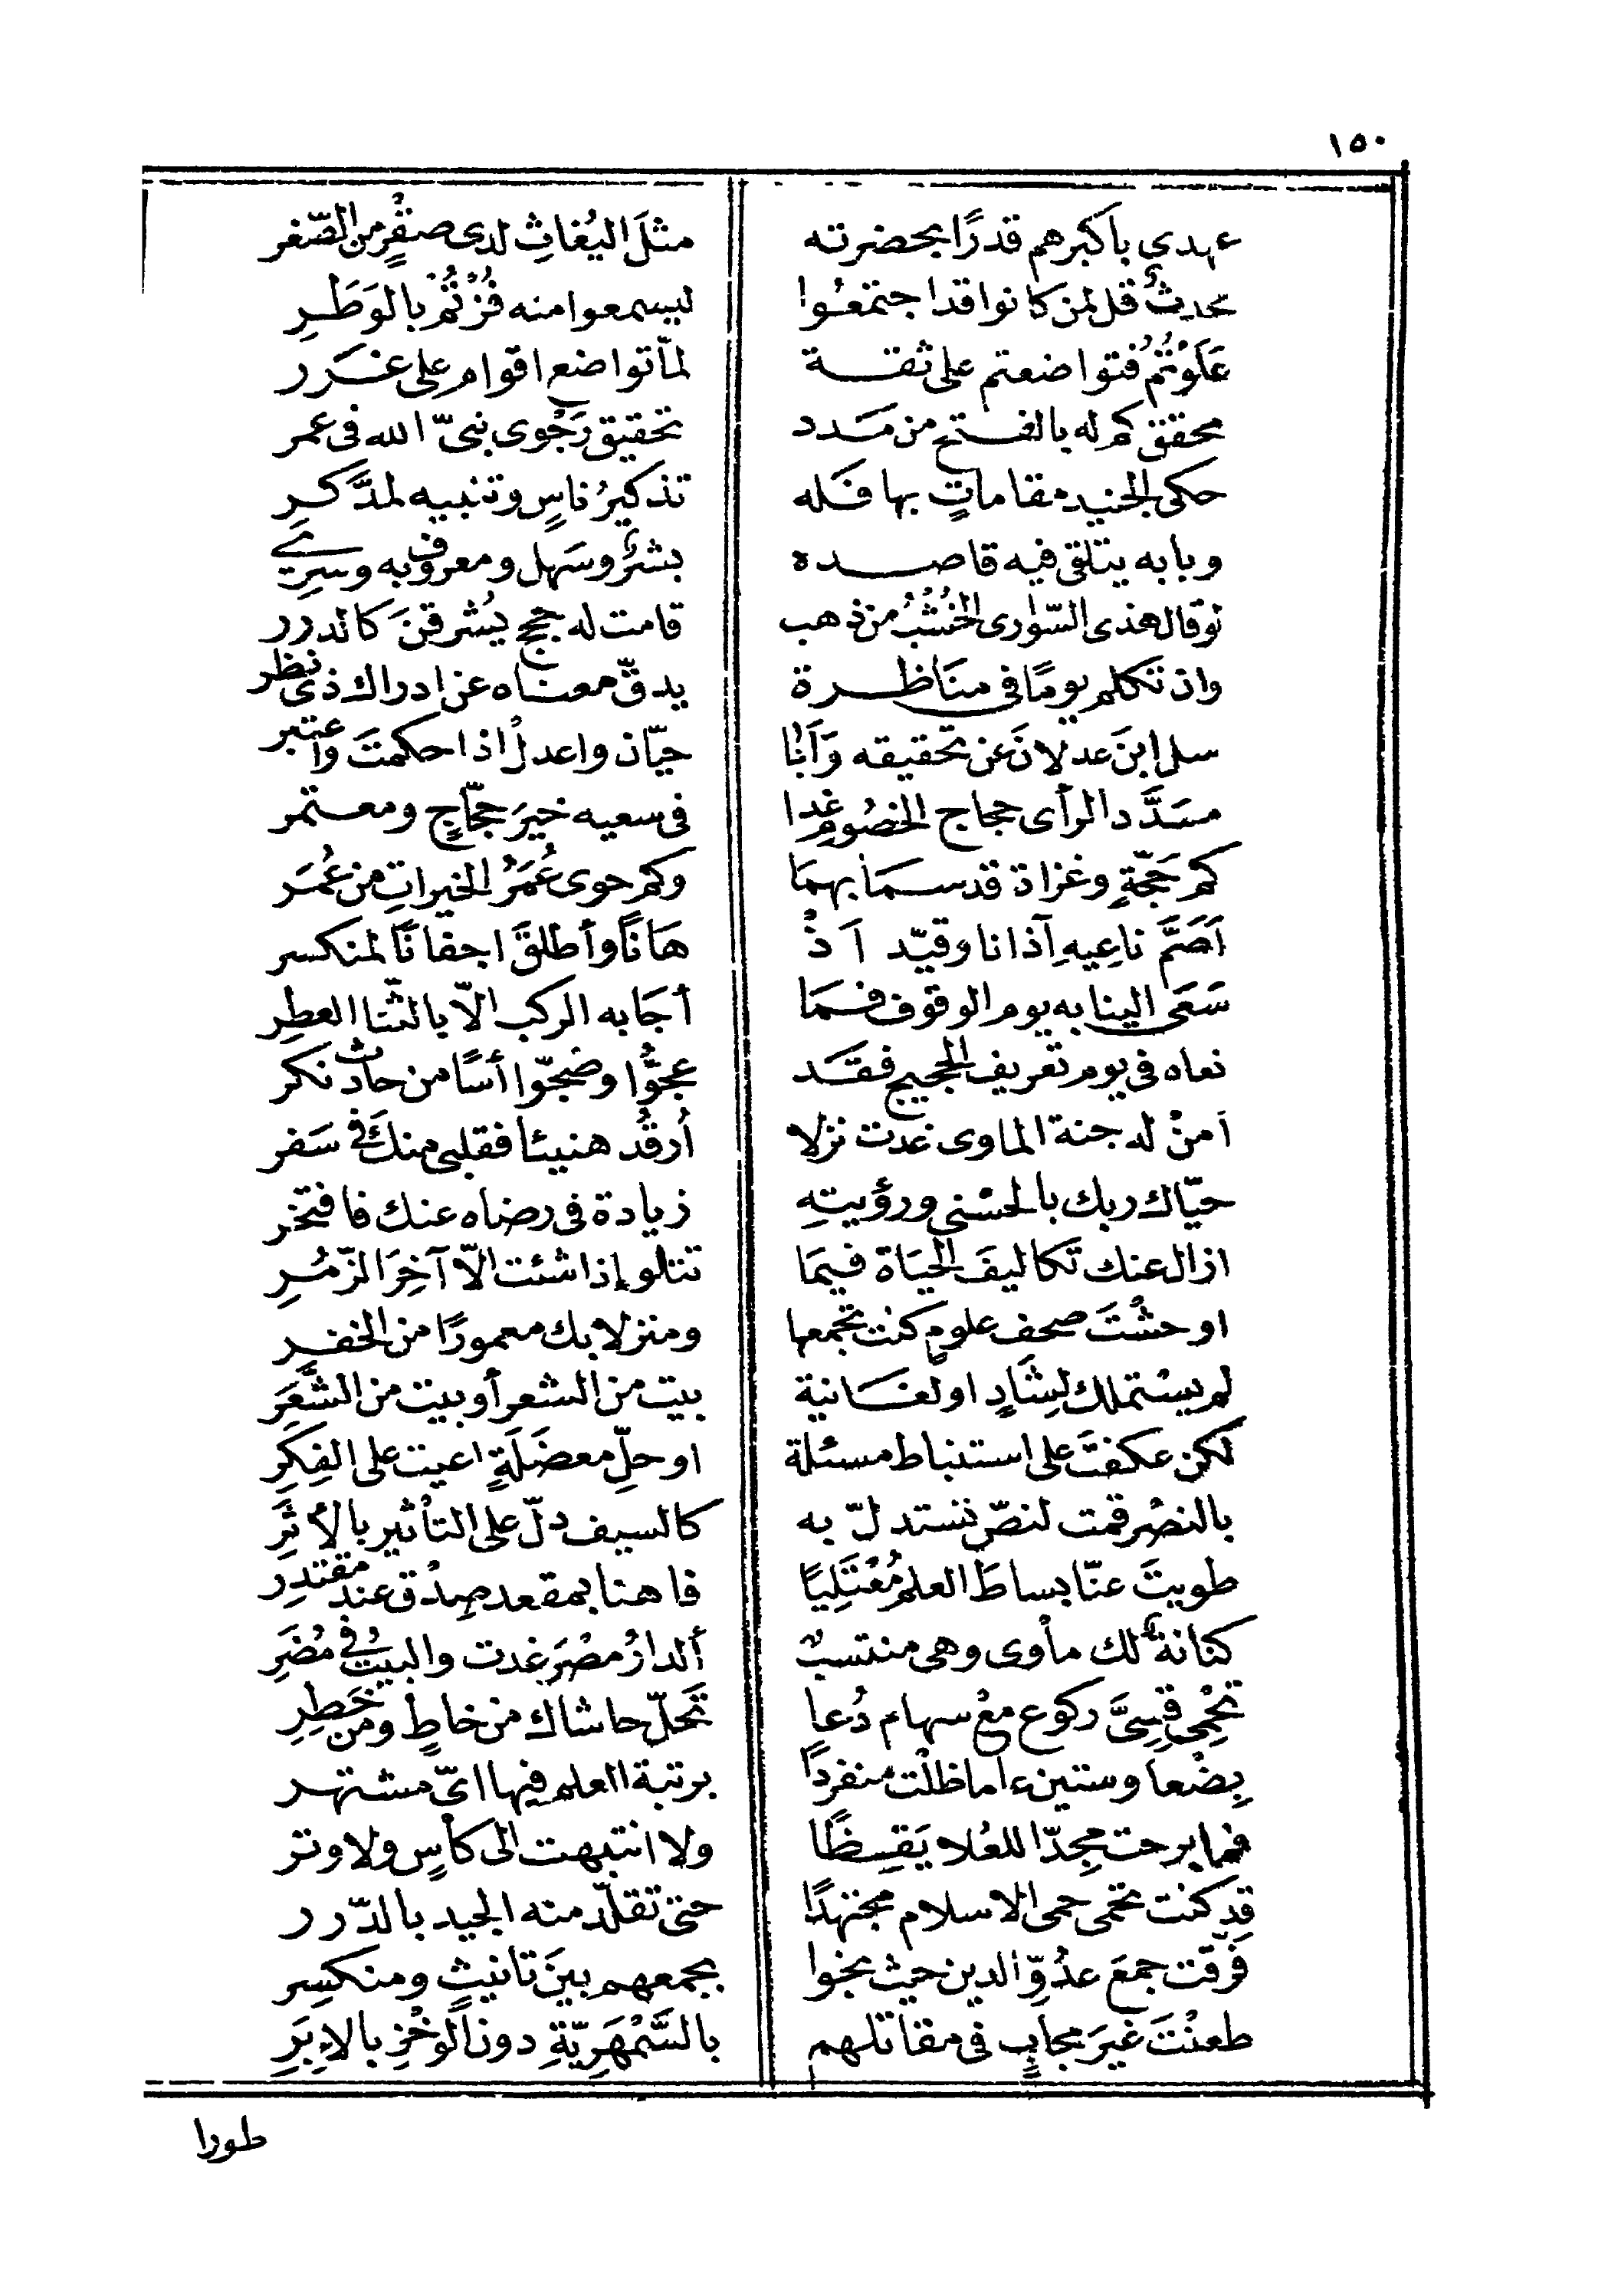 ١٥٠
عهدى باكبرهم قدرًا بحضرته مثلَ البُغاثِ لدى صقرٍ من الصّغر
محدثٌ قل لمن كانوا قد اجتمعُوا ليسمعوا منه فُزْتُمْ بالوَطَرِ
عَلَوْتُمُ فتواضعتم على ثقة لمّا تواضع اقوام على غرر
محقق كم له بالفتح من مَدد تحقيق رَجْوى نبىّ الله فى عمر
حكى الجنيد مقاماتٍ بها فَله تذكيرُ ناسٍ وتنبيه لمدَّكرِ
وبابه يتلقى فيه قاصده بشرٌ وسَهل ومعروف به وسرى
لو قال هذى السّوارى الخُشْبُ من ذهب قامت له حجج يُشرقنَ كالدرر
وان تكلم يومًا فى منَاظرة يدقّ معناه عن ادراك ذى نظر
سل ابنَ عدلانَ عن تحقيقه وَأبَا حيّان واعدلْ اذا حكمتَ واعتبر
مسَدَّد الرأى حجاج الخصُوم غدا فى سعيه خيرَ حجّاجٍ ومعتمر
كم حَجّةٍ وغزاة قد سمَا بهمَا وكم حوى عُمَرُ الخيراتِ من عُمَر
اَصَمَّ ناعِيهِ آذانا وقيّد اَذْ هَانًا وأطلقَ اجفانًا لمنكسر
سَعَى الينا به يوم الوقوف فمَا أجَابه الركب الّا بالثّنا العطِر
نعاه فى يوم تعريف الحجيج فقَد عجُّوا وضجّوا أسًا من حادث نكر
اَمنْ له جنة الماوى غدت نزلا أرقُد هنيئا فقلبى منكَ فى سَفر
حيّاك ربك بالحسْنى ورؤيتهِ زيادة فى رضاه عنك فافتخر
ازال عنك تكاليفَ الحيَاة فيمَا تتلو إذا شئت الّا آخِرَ الزّمُرِ
اوحشْتَ صحف علومٍ كنت تجمعها ومنزلا بك معمورًا من الخفر
لم يستملك لِشَادٍ او لغَانية بيت من الشعر أو بيت من الشَّعَر
لكن عكفتَ على استنباط مسئلة او حلِّ معضَلَةٍ اعيت على الفِكرِ
بالنصْر قمت لنصّ تستدلّ به كالسيف دلّ على التأثير بالأثَرِ
طويتَ عنّا بساطَ العلم مُعْتَلِيًا فاهنا بمقعد صِدْق عند مقتدِر
كنانةٌ لك مأوى وهى منتسبٌ ألدارُ مصْرَ غدت والبيتُ فى مُضَرِ
تحْمِى قِسِىَّ ركوع معْ سهام دُعا تَحَلّ حاشاك من خاطٍ ومن خَطِرِ
بِضْعا وستين عاما ظلْت منفردًا برتبة العلم فيها اىّ مشتهر
فما برحت مجِدّا للعُلا يَقِظًا ولا انتبهت الى كأسٍ ولا وتر
قدِ كنت تحمى حمى الاسلام مجتهدًا حتى تقلّد منه الجيد بالدّرر
فَرّقت جمعَ عدُوِّ الدين حيث نحوا بجمعهم بينَ تانيثٍ ومنكسِر
طعنْتَ غيرَ محابٍ فى مقاتلهم بالسَّمْهَرِيّةِ دون الوخْزِ بالإبَرِ
طورا